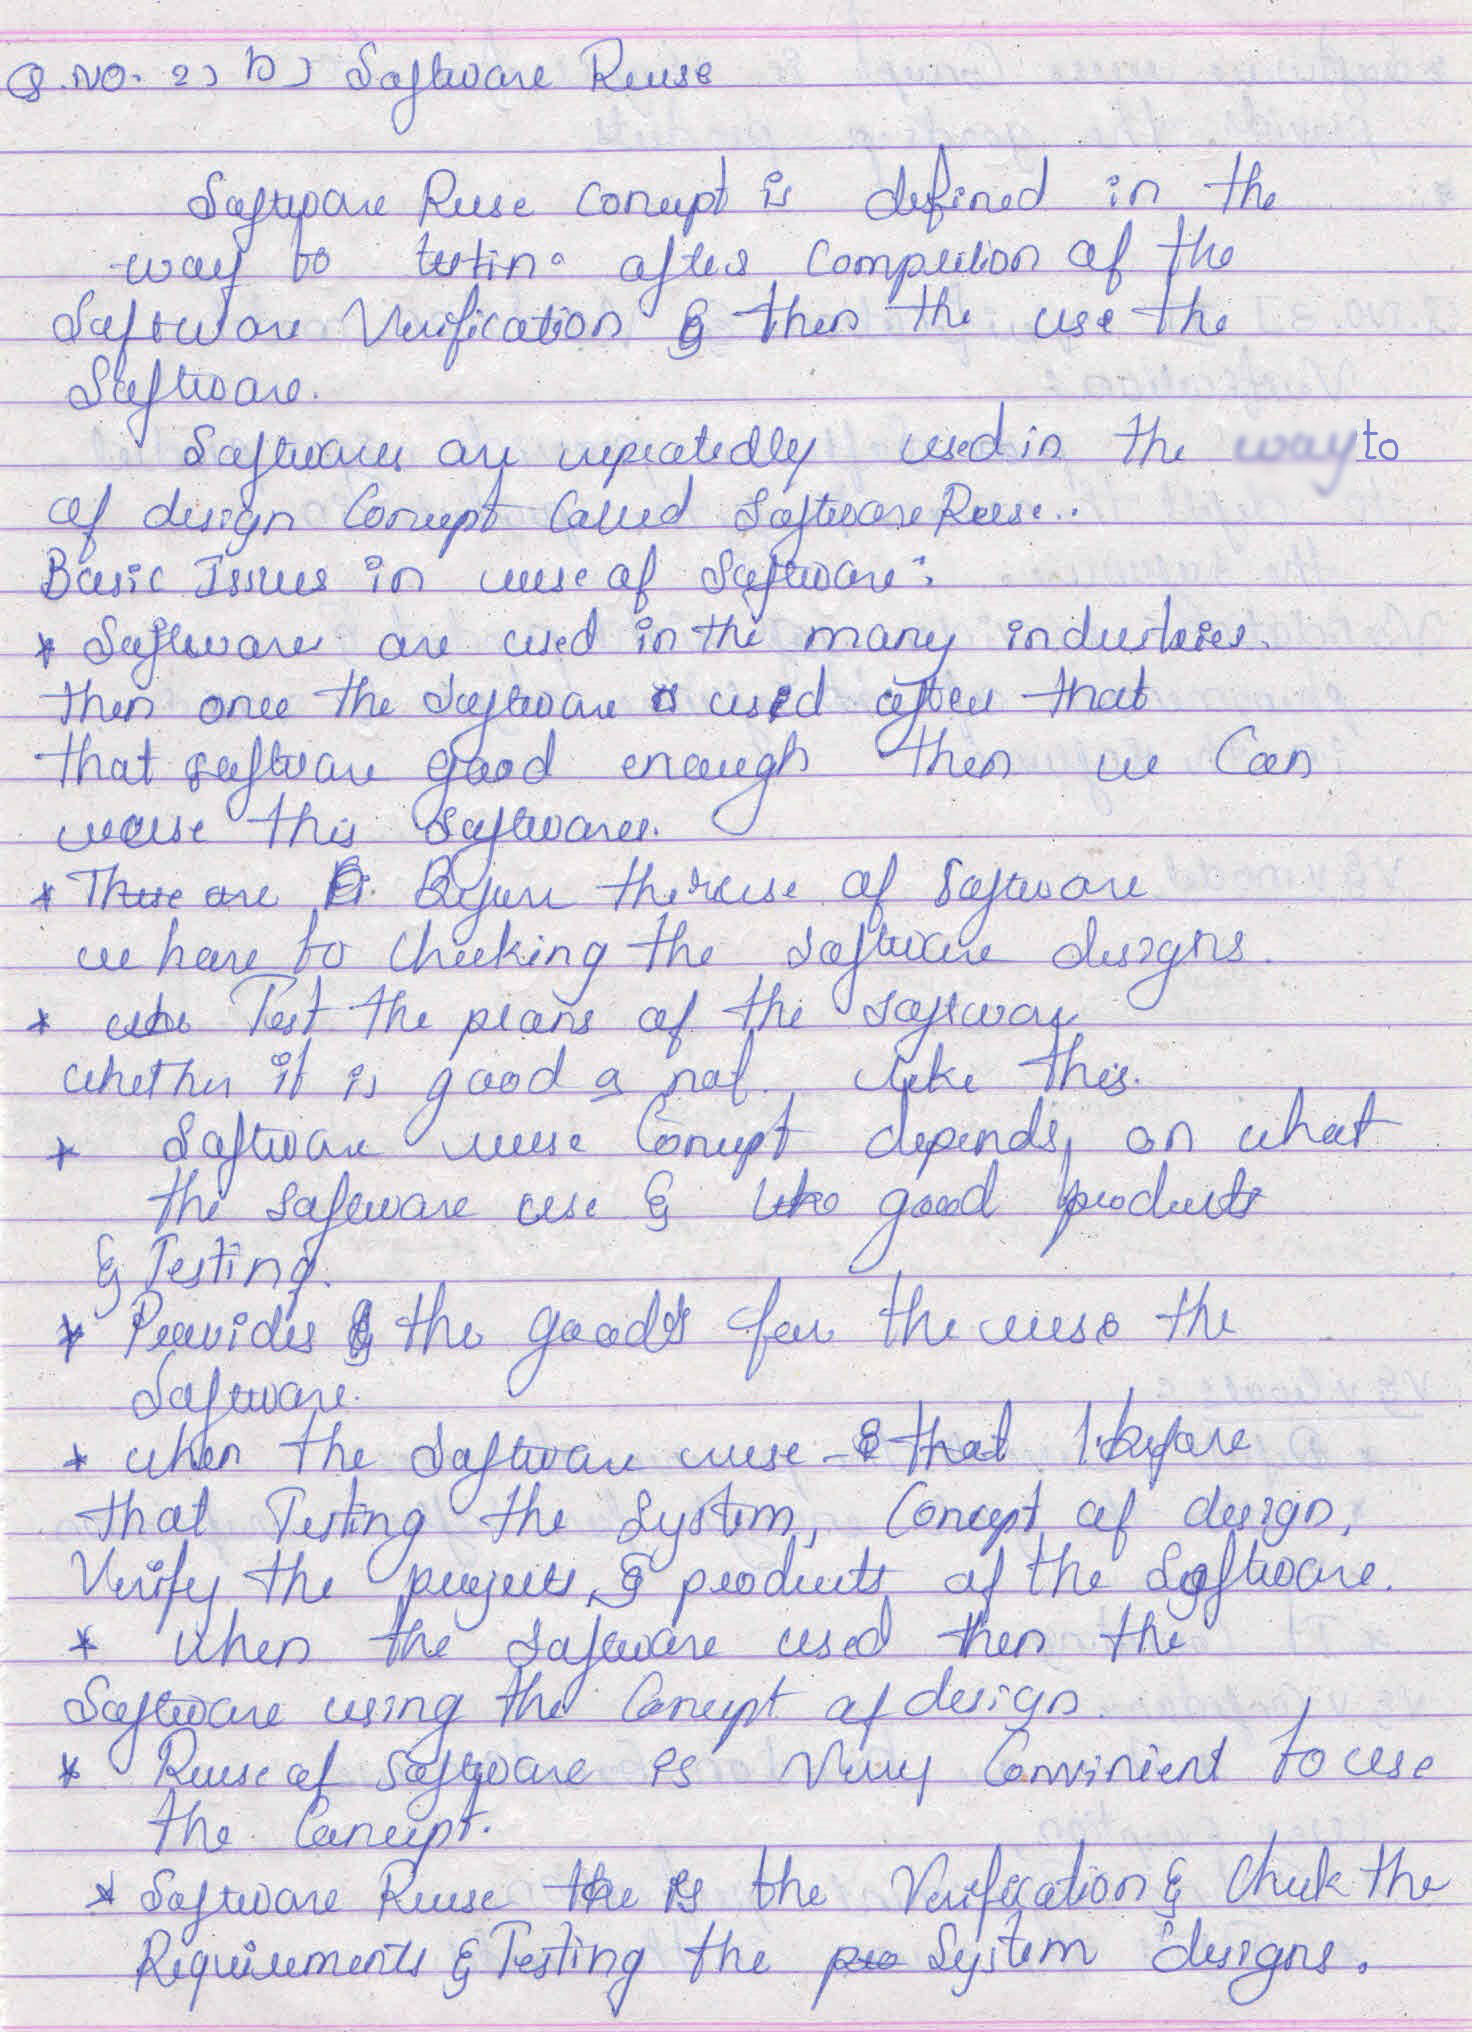 Q.NO. 2) b) Software Reuse
Software Reuse Concept is defined in the
way to testing after Completion of the
Software Verification & then the use the
Software.
Softwares are repeatedly used in the to
of design Concept Called Software Reuse..
Basic Issues in reuse of Software:
* Softwares are used in the many industries.
then once the Software is used after that
that software good enough then we Can
reuse this Softwares.
* Before the reuse of Software
we have to Checking the Software designs.
* Test the plans of the Software
whether it is good a not. like this.
* Software reuse Concept depends on what
the Software use & good products
& Testing.
* Provides & the goods for the reuse the
Software.
* when the Software reuse that before
that Testing the System, Concept of design,
Verify the projects, & products of the Software.
* when the Software used then the
Software using the Concept of design.
* Reuse of Software is Very Convinient to use
the Concept.
* Software Reuse is the Verification & Check the
Requirements & Testing the System designs.